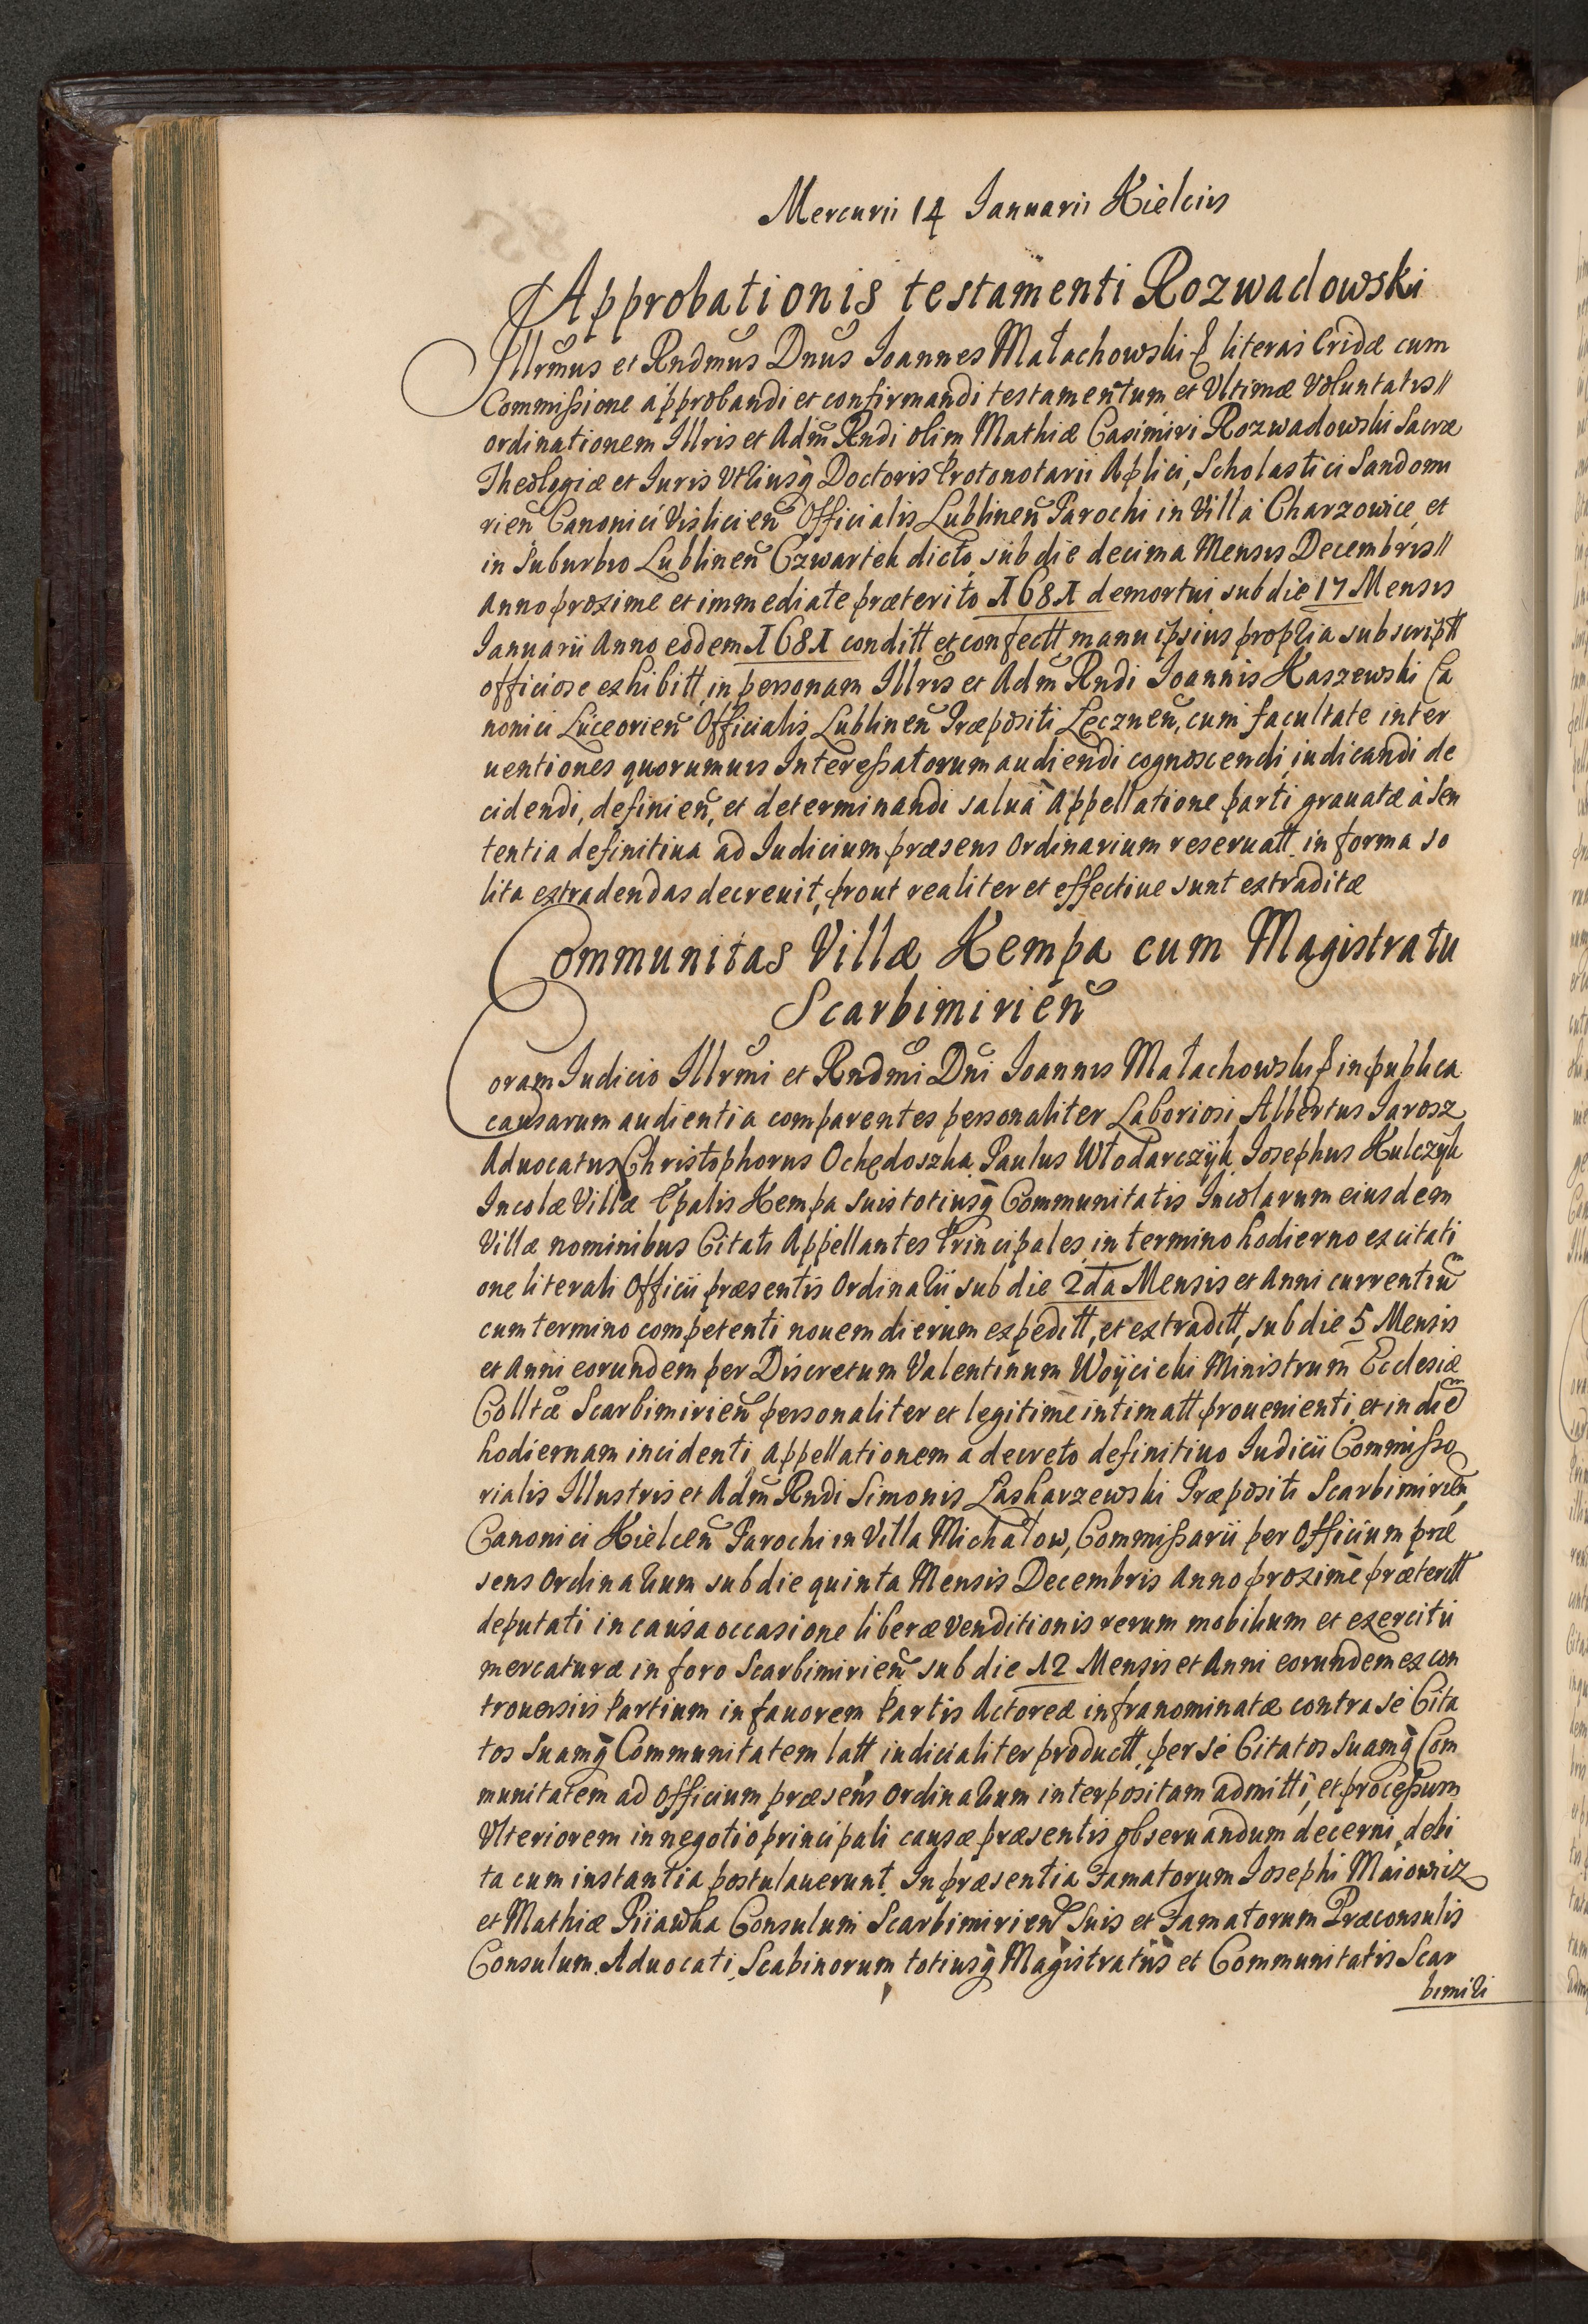 Mercurii 14 Ianuarii Kielciis
Approbationis testamenti Rozwadowski
Illrmus et Rndmus Dnus Ioannes Małachowski & literas Cridæ cum
Commißione approbandi et confirmandi testamentum et Ultimæ Voluntatis //
ordinationem Illris et Adm Rndi olim Mathiæ Casimiri Rozwadowski Sacræ
Theologiæ et Iuris Utriusq Doctoris Protonotarii Aplici, Scholastici Sandomi
rien Canonici Vislicien Officialis Lublinen Parochi in Villa Charzowice, et
in Suburbio Lublinen Czwartek dicto, sub die decima Mensis Decembris //
Anno proxime et immediate præterito 1681 demortui sub die 17 Mensis
Ianuarii Anno eodem 1681 conditt et confectt, manu ipsius propria subscriptt
officiose exhibitt, in personam Illris et Adm Rndi Ioannis Kaszewski Ca
nonici Luceorien Officialis Lublinen Præpositi Łęcznen, cum facultate inter
uentiones quorumuis Intereßatorum audiendi cognoscendi, iudicandi de
cidendi, definien, et determinandi salua Appellatione parti grauatæ à Sen
tentia definitiua ad Iudicium præsens Ordinarium reseruatt, in forma so
lita extradendas decreuit, prout realiter et effectiue sunt extraditæ
Communitas Villæ Kempa cum Magistratu
Scarbimirien
Coram Iudicio Illrmi et Rndmi Dni Ioannis Małachowski & in publica
causarum audientia comparentes personaliter Laboriosi Albertus Iarosz
Aduocatus Christophorus Ochędoszka Paulus Włodarczÿk Iosephus Kulczÿk
Incolæ Villæ Epalis Kempa suis totiusq Communitatis Incolarum eiusdem
Villæ nominibus Citati Appellantes Principales, in termino hodierno ex citati
one literali Officii præsentis Ordinarii sub die 2da Mensis et Anni currentium
cum termino competenti nouem dierum expeditt, et extraditt, sub die 5 Mensis
et Anni eorundem per Discretum Valentinum Woÿcicki Ministrum Ecclesiæ
Colltæ Scarbimirien personaliter et legitime intimatt prouenienti, et in diem
hodiernam incidenti, appellationem a decreto definitiuo Iudicii Commißo
rialis Illustris et Adm Rndi Simonis Laskarzewski Præpositi Scarbimirien,
Canonici Kielcen Parochi in Villa Michałow, Commißarii per Officium præ
sens Ordinarium sub die quinta Mensis Decembris Anno proxime præteritt
deputati in causa occasione liberæ venditionis rerum mobilium et exercitii
mercaturæ in foro Scarbimirien sub die 12 Mensis et Anni eorundem ex con
trouersiis Partium in fauorem Partis Actoreæ infranominatæ contra se Cita
tos Suamq Communitatem latt, iudicialiter productt, per se Citatos Suamq Com
munitatem ad Officium præsens Ordinarium interpositam admitti, et proceßum
Ulteriorem in negotio principali causæ præsentis obseruandum decerni, debi
ta cum instantia postulauerunt. In præsentia Famatorum Iosephi Maiowicz
et Mathiæ Piiawka Consulum Scarbimirien Suis et Famatorum Præconsulis
Consulum, Aduocati, Scabinorum, totiusq Magistratus et Communitatis Scar
bimiri